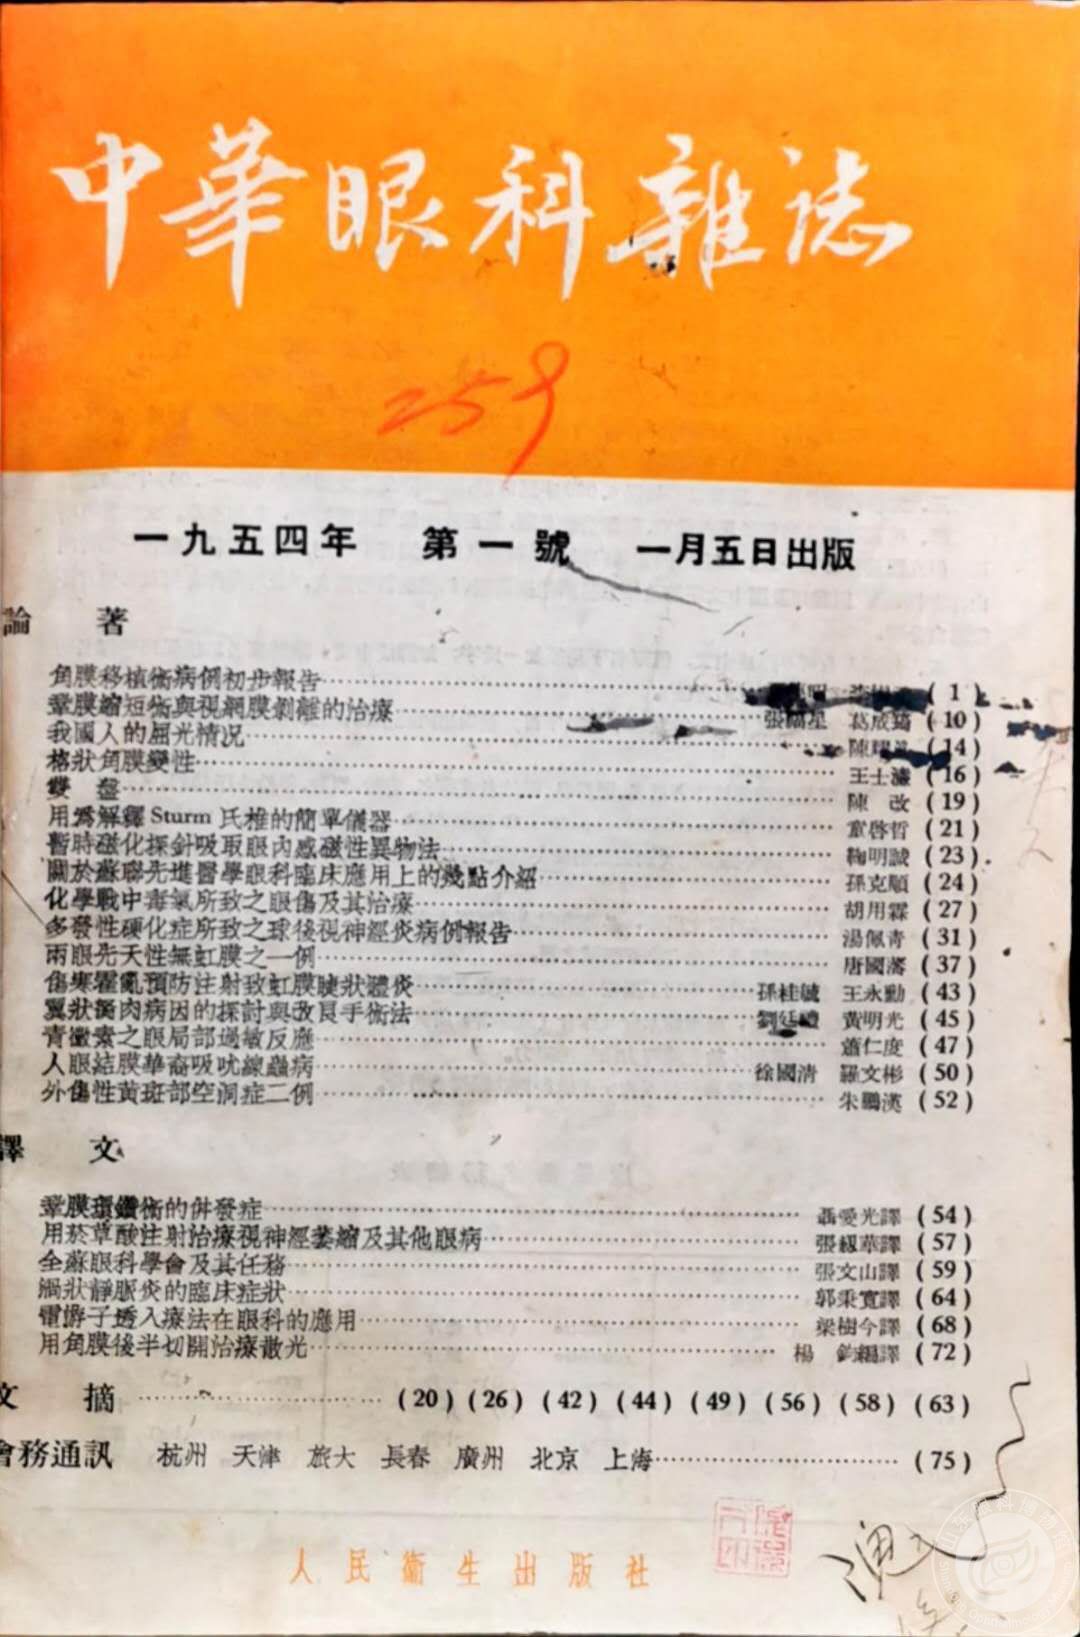 中華眼科雜誌
259
一九五四年 第一號 一月五日出版
論 著
角膜移植術病例初步報告 (1)
鞏膜縮短術與視網膜剝離的治療 張福星 葛成筠 (10)
我國人的屈光情況 陳耀眞 (14)
格狀角膜變性 王士濂 (16)
雙 盤 陳 改 (19)
用爲解釋 Sturm 氏椎的簡單儀器 童啓哲 (21)
暫時磁化探針吸取眼內感磁性異物法 鞠明誠 (23)
關於蘇聯先進醫學眼科臨床應用上的幾點介紹 孫克順 (24)
化學戰中毒氣所致之眼傷及其治療 胡用霖 (27)
多發性硬化症所致之球後視神經炎病例報告 湯佩青 (31)
兩眼先天性無虹膜之一例 唐國藩 (37)
傷寒霍亂預防注射致虹膜睫狀體炎 孫桂毓 王永勳 (43)
翼狀胬肉病因的探討與改良手術法 劉延禮 黃明光 (45)
青黴素之眼局部過敏反應 蕭仁度 (47)
人眼結膜華裔吸吮線蟲病 徐國清 羅文彬 (50)
外傷性黃斑部空洞症二例 朱鵬漢 (52)
譯 文
鞏膜環鑽術的併發症 聶愛光譯 (54)
用菸草酸注射治療視神經萎縮及其他眼病 張紉華譯 (57)
全蘇眼科學會及其任務 張文山譯 (59)
渦狀靜脈炎的臨床症狀 郭秉寬譯 (64)
電游子透入療法在眼科的應用 梁樹今譯 (68)
用角膜後半切開治療散光 楊 鈞編譯 (72)
文 摘 (20) (26) (42) (44) (49) (56) (58) (63)
會務通訊 杭州 天津 旅大 長春 廣州 北京 上海 (75)
人民衛生出版社